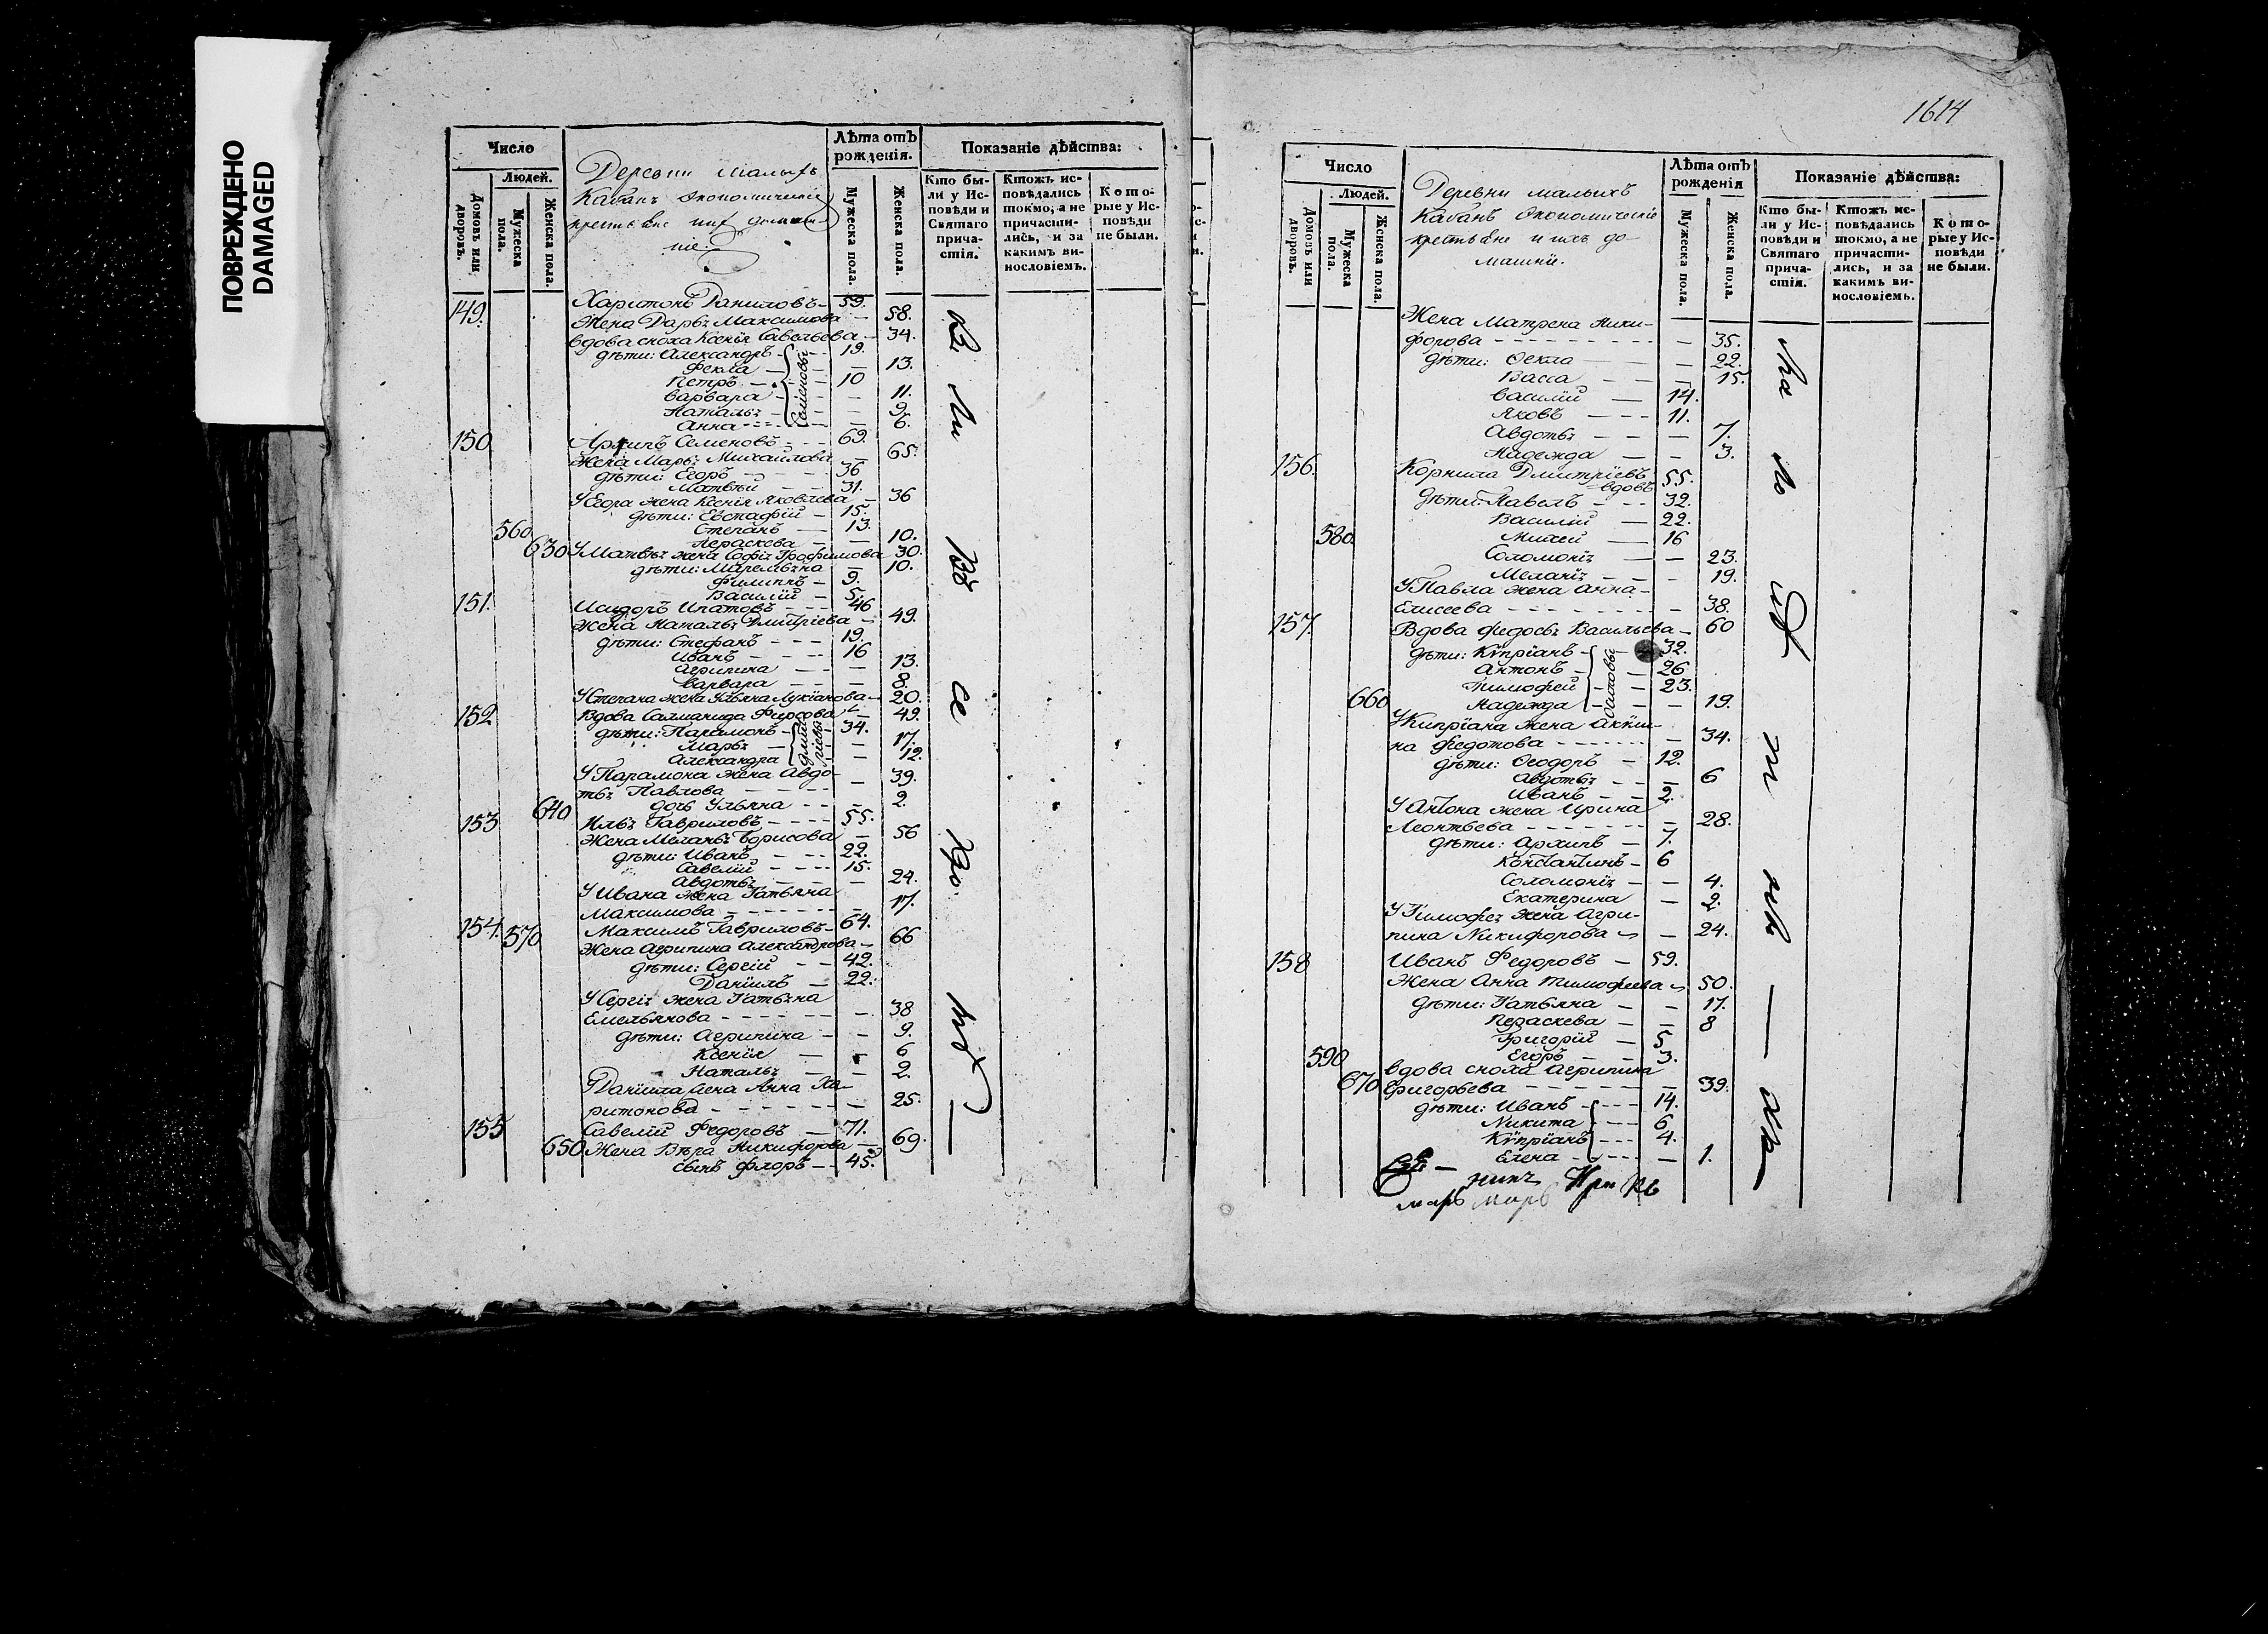 ПОВРЕЖДЕНО
DAMAGED
Число
Людей.
Домовъ или дворовъ.
Мужеска пола.
Женска пола.
Деревни малыхъ
Кабанъ экономическіе
крестьяне
Лѣта отъ рожденія.
Мужеска пола.
Женска пола.
Показаніе дѣйства:
Кто были у Исповѣди и Святаго причастія.
Ктожъ исповѣдались токмо, а не причастились, и за какимъ винословіемъ.
Которые у Исповѣди не были.
149. Харитонъ Даниловъ - 59.
Жена Дарья Максимова - 58.
вдова сноха Ксенія Савельева - 34.
дѣти: Александръ - 19.
Фекла - 13.
Петръ - 10
Варвара - 11.
Наталья - 9.
Анна - 6.
Семеновы
150. Архипъ Семеновъ - 69.
Жена Марья Михайлова - 65.
дѣти: Егоръ - 36
Матвѣй - 31.
У Егора жена Ксенія Яковлева - 36
дѣти: Евстафій - 15.
560 Степанъ - 13.
Пераскева - 10.
630 У Матвѣя жена Софія Трофимова 30.
дѣти: Маремьяна - 10.
Филиппъ - 9.
Василій - 5.
151. Исидоръ Ипатовъ - 46
Жена Наталья Дмитріева - 49.
дѣти: Стефанъ - 19.
Иванъ - 16
Агрипина - 13.
Варвара - 8.
У Степана жена Ульяна Лукіанова - 20.
152 Вдова Саламанида Фирсова - 49.
дѣти: Парамонъ - 34.
Марья - 17.
Александра - 12.
Дмитріевы
У Парамона жена Авдо-
тья Павлова - 39.
640 дочь Ульяна - 2.
153 Илья Гавриловъ - 55.
Жена Меланья Борисова - 56
дѣти: Иванъ - 22.
Савелій - 15.
Авдотья - 24.
У Ивана жена Татьяна
Максимова - 17.
154. 570 Максимъ Гавриловъ - 64.
Жена Агрипина Александрова - 66
дѣти: Сергій - 42.
Даніилъ - 22.
У Сергія жена Татьяна
Емельянова - 38
дѣти: Агрипина - 9.
Ксенія - 6
Наталья - 2.
У Даніила жена Анна Ха-
ритонова - 25.
155 Савелій Федоровъ - 71.
650 Жена Вѣра Никифорова - 69.
сынъ Флоръ - 45.
1614
Число
Людей.
Домовъ или дворовъ.
Мужеска пола.
Женска пола.
Деревни малыхъ
Кабанъ экономическіе
крестьяне и ихъ до-
машніе.
Лѣта отъ рожденія
Мужеска пола.
Женска пола.
Показаніе дѣйства:
Кто были у Исповѣди и Святаго причастія.
Ктожъ исповѣдались токмо, а не причастились, и за какимъ винословіемъ.
Которые у Исповѣди не были.
Жена Матрена Ники-
форова - 35.
дѣти: Фекла - 22.
Васса - 15.
Василій - 14.
Яковъ - 11.
Авдотья - 7.
Надежда - 3.
156. Корнила Дмитріевъ вдовъ 55.
дѣти: Павелъ - 32.
Василій - 22.
580. Михей - 16
Соломонія - 23.
Меланія - 19.
У Павла жена Анна
Елисеева - 38.
157. Вдова Федосья Васильева - 60
дѣти: Купріанъ - 32.
Антонъ - 26.
Тимофей - 23.
660 Надежда - 19.
У Кипріана жена Акили-
на Федотова - 34.
дѣти: Феодоръ - 12.
Авдотья - 6
Иванъ - 2.
У Антона жена Ирина
Леонтьева - 28.
дѣти: Архипъ - 7.
Константинъ - 6
Соломонія - 4.
Екатерина - 2.
У Тимофея жена Агри-
пина Никифорова - 24.
158 Иванъ Федоровъ - 59.
Жена Анна Тимофеева - 50.
дѣти: Татьяна - 17.
Пераскева - 8
Григорій - 5
590 Егоръ - 3.
вдова сноха Агрипина
670 Григорьева - 39.
дѣти: Иванъ - 14.
Никита - 6
Купріанъ - 4.
Елена - 1.